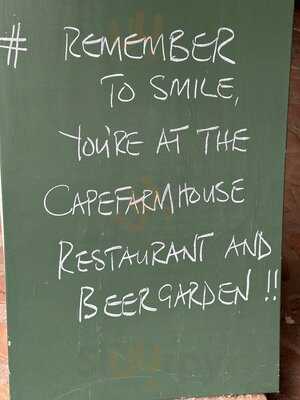 # REMEMBER
TO SMILE,
YOU'RE AT THE
CAPEFARMHOUSE
RESTAURANT AND
BEERGARDEN !!